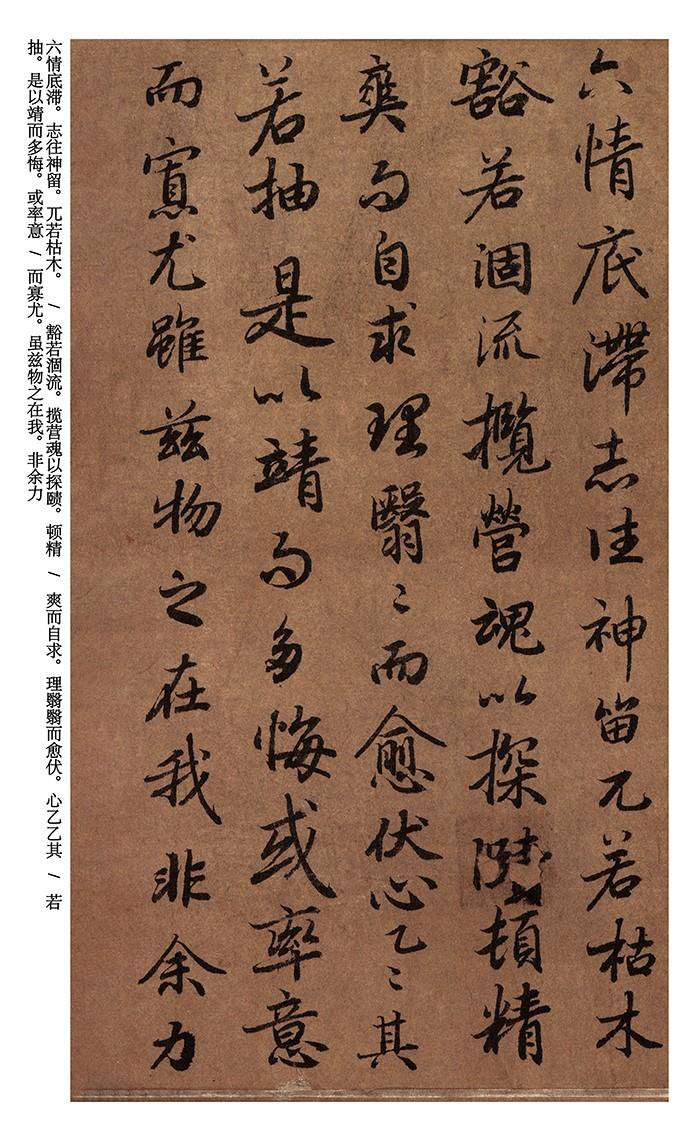 六情底滯志往神留兀若枯木
豁若涸流攬營魂以探賾頓精
爽而自求理翳〻而愈伏心乙〻其
若抽是以靖而多悔或率意
而寡尤雖茲物之在我非余力
六情底滞。志往神留。兀若枯木。 / 豁若涸流。揽营魂以探赜。顿精 / 爽而自求。理翳翳而愈伏。心乙乙其 / 若
抽。是以靖而多悔。或率意 / 而寡尤。虽兹物之在我。非余力